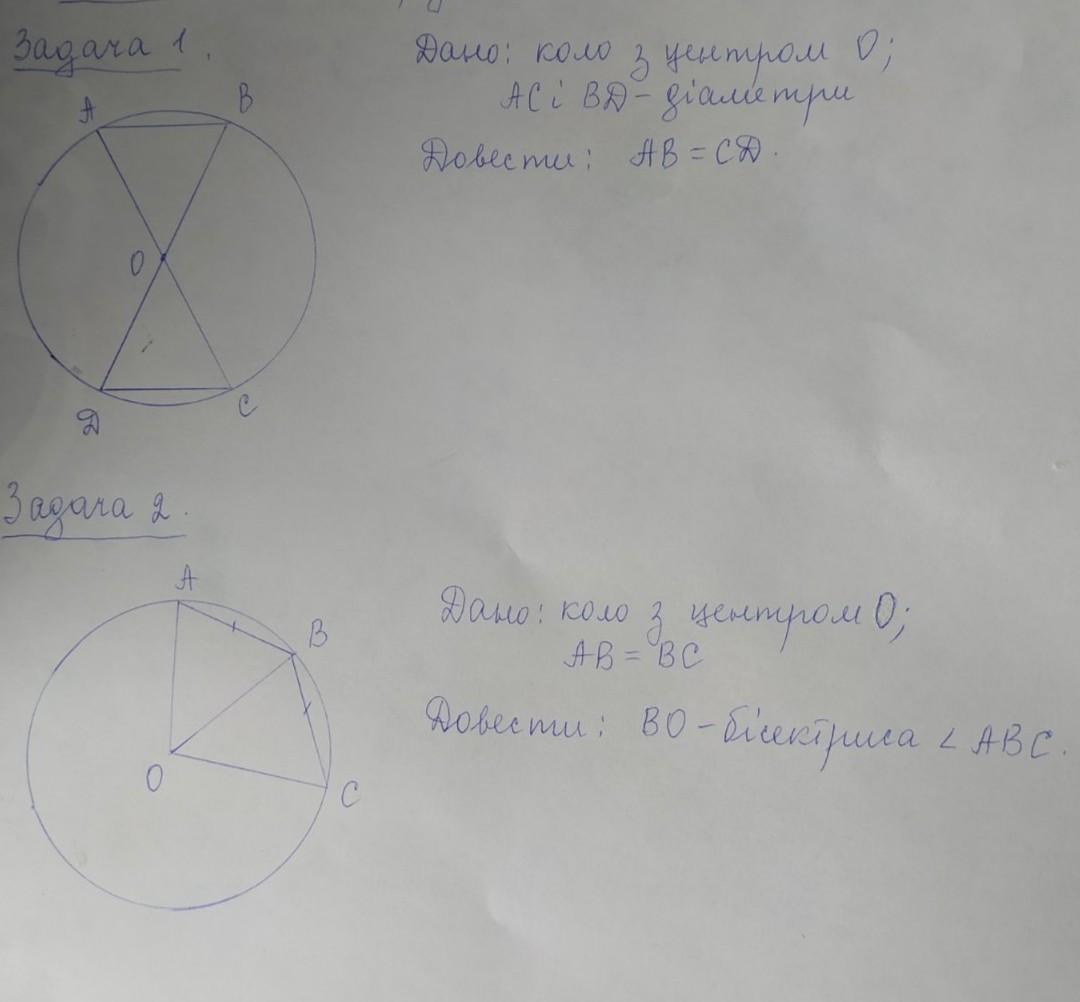 Задача 1.
Дано: коло з центром O;
AC і BD - діаметри
Довести: AB = CD.
A
B
O
D
C
Задача 2.
Дано: коло з центром O;
AB = BC
Довести: BO - бісектриса < ABC.
A
B
O
C